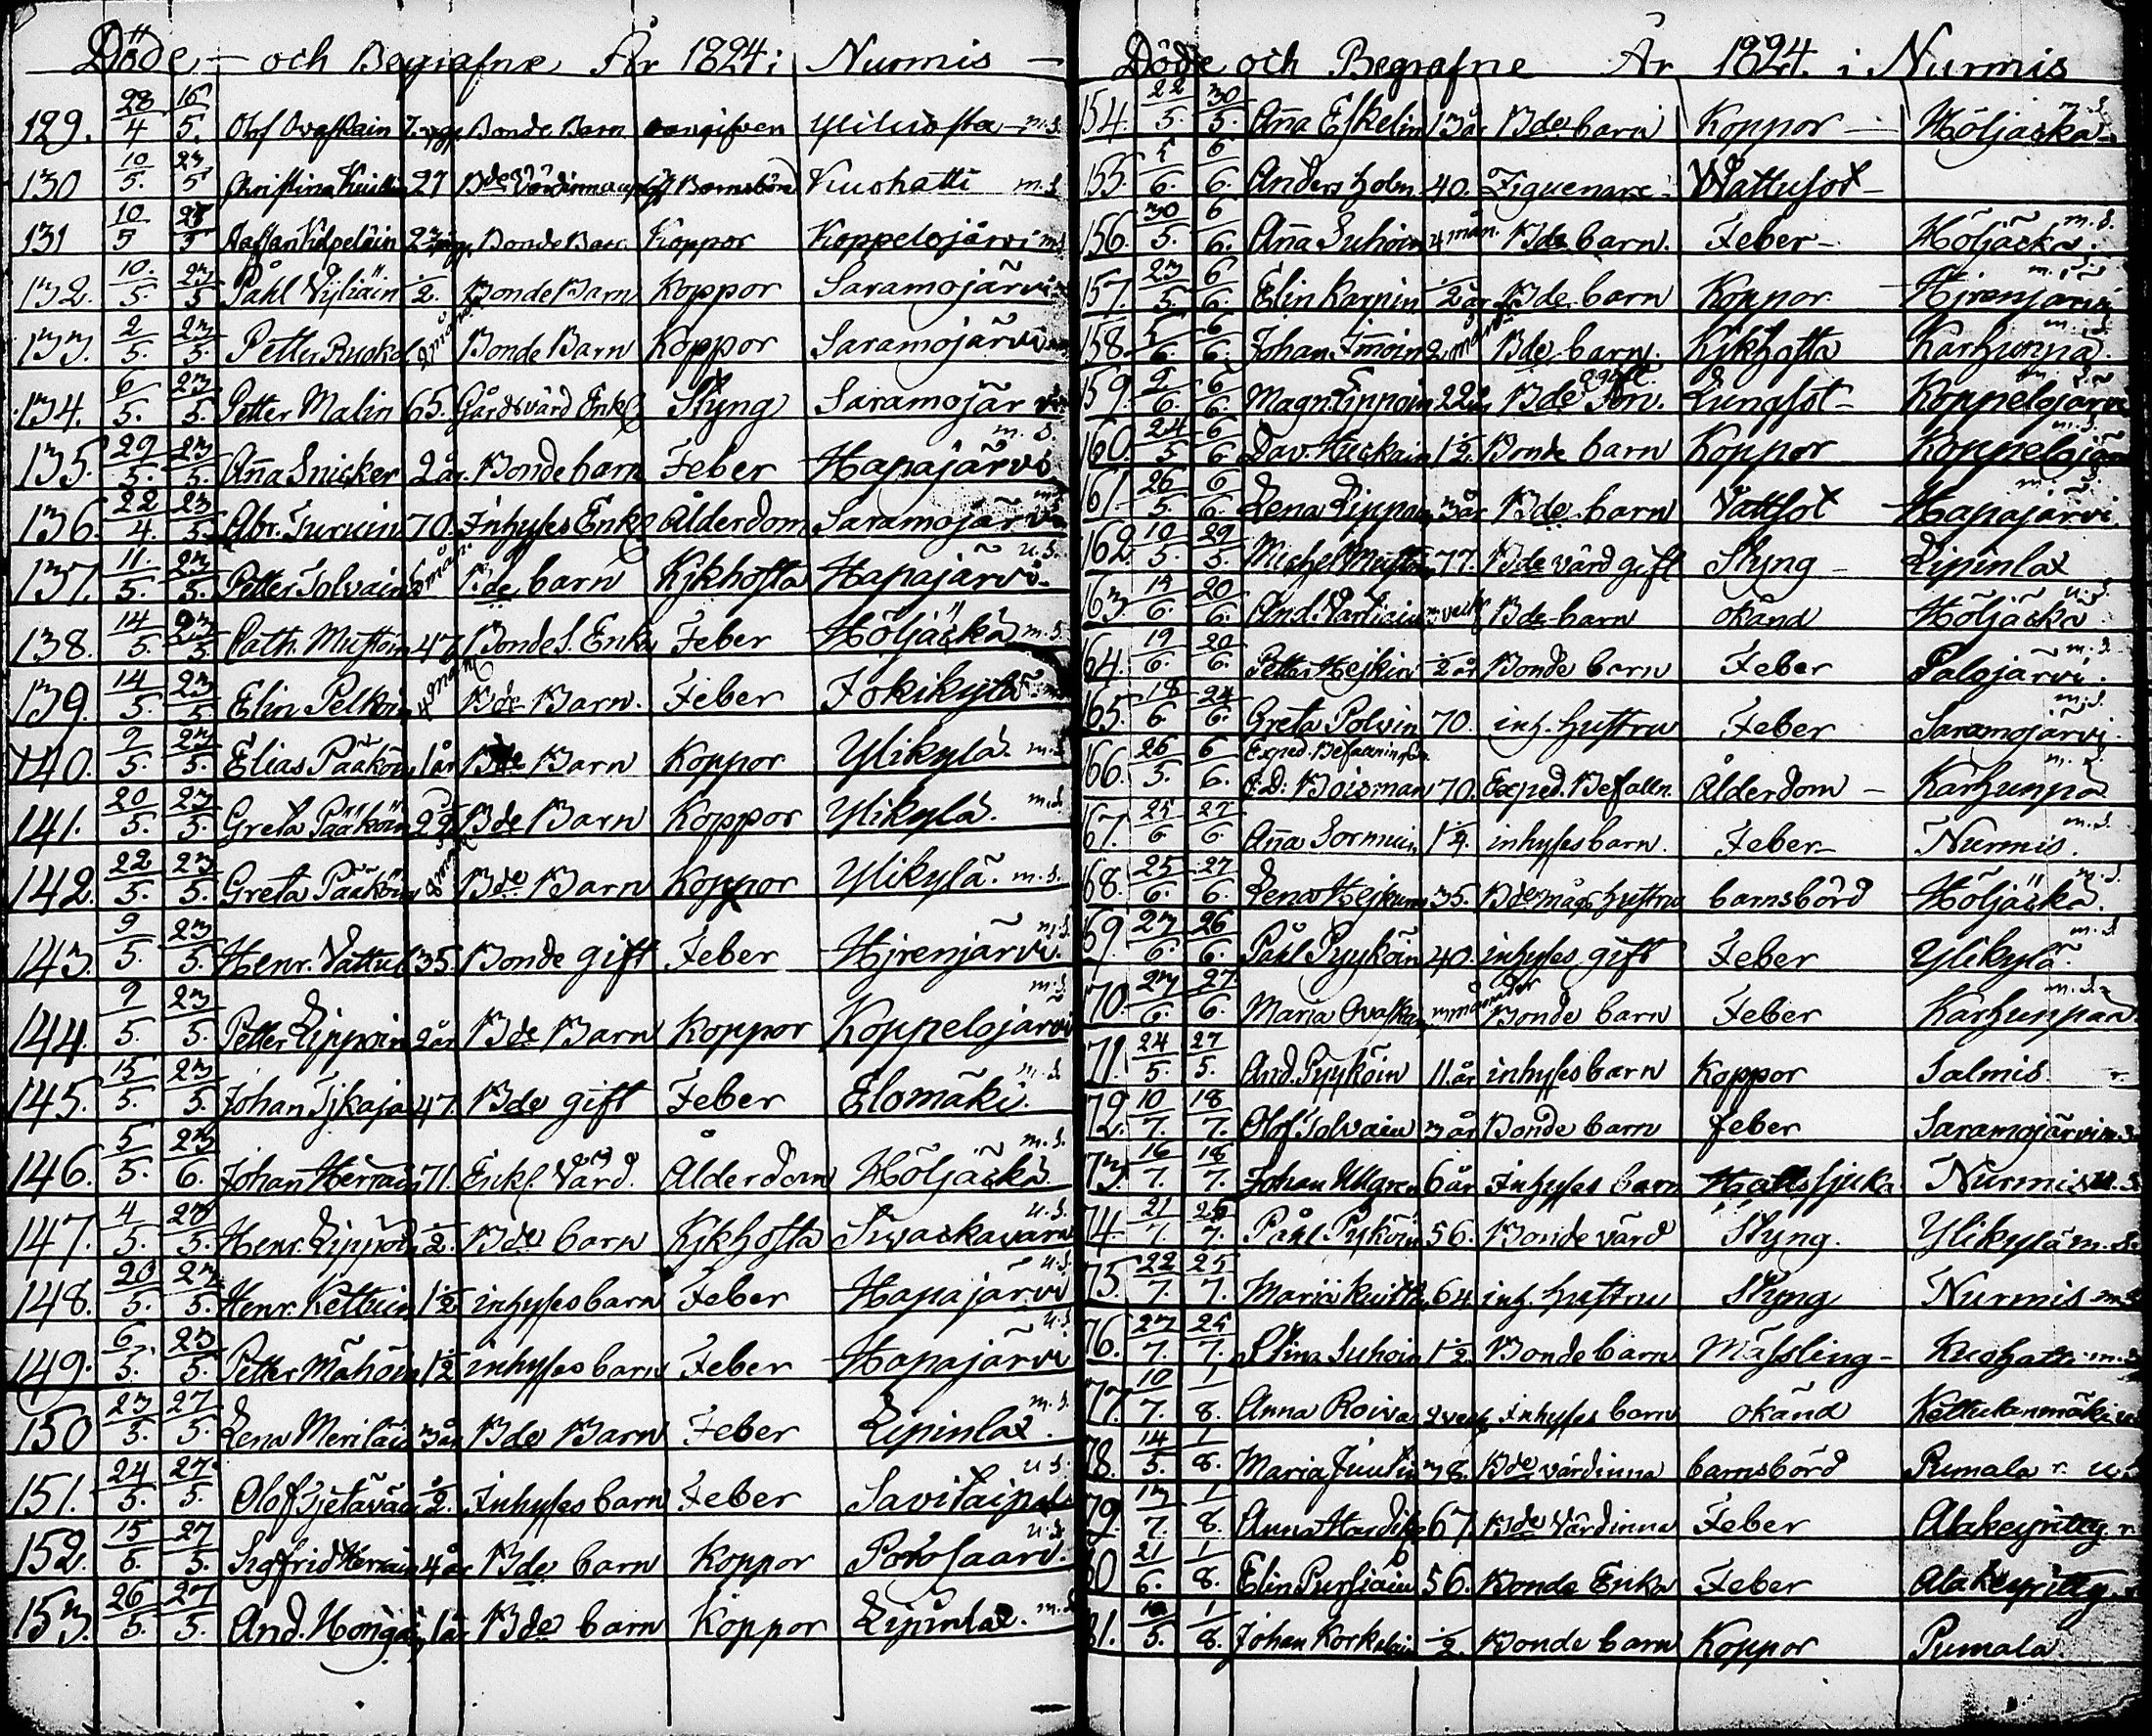 Döde - och Begrafne År 1824 i Nurmis -
129. 28/4 16/5. Olof Ovaskain Bonde Barn m.s.
130 10/5. 23/5 Christina 27 Barnsbörd Kuohatti m.s.
131 10/5 23/5 Kilpeläin Bonde Barn Koppor Koppelojärvi m.s.
132. 10./5. 23/5 Påhl 1/2. Bonde Barn Koppor Saramojärvi
133. 2/5. 23/5. Petter Bonde Barn Koppor Saramojärvi
134. 6/5. 23/5. Petter Malin 65. Gårdsvärd Enkl Styng Saramojärvi
135. 29/5. 23/5. Aña Snicker 2 år. Bonde barn Feber Hapajärvi m.s.
136. 22/4. 23/5. Abr. Turuin 70. Inhyses Enkl Ålderdom Saramojärvi
137. 11./5. 23/5. Petter Tolvain 6 mån. Bde barn Kjkhosta Hapajärvi u.s.
138. 14/5. 23/5. Cath. Muston 47 Bonde S. Enka Feber Höljäckä m.s.
139. 14/5. 23/5 Elin Pelkoin 4 mån Bde Barn. Feber Jokikylä
140. 9/5. 23/5. Elias Pääköin 1 år Bde Barn Koppor Ylikylä. m.s.
141. 20/5. 23/5. Greta Pääköin Bde Barn Koppor Ylikylä. m.s.
142. 22/5. 23/5. Greta Pääköin Bde Barn Koppor Ylikylä. m.s.
143. 9/5. 23/5. Henr. Vattul 35. Bonde gift Feber Hjrenjärvi. m.s.
144. 9/5. 23/5. Petter Lippoin 2 år Bde Barn Koppor Koppelojärvi m.s.
145. 15/5. 23/5. Johan Tjkaja 47. Bde gift Feber Elomäki. m.s.
146. 5/5. 23/6. Johan Herrain 71. Enkl. Värd. Ålderdom Höljäckä m.s.
147. 4/5. 23/5. Henr. Lippoin 1/2. Bde barn Kjkhosta Sivackavara u.s.
148. 20/5. 23/5. Henr. Kettuin 1 1/2 inhyses barn Feber Hapajärvi u.s.
149. 6./5. 23/5. Petter Mähöin 1 1/2 inhyses barn Feber Hapajärvi u.s.
150 23/5. 27/5. Lena Meriläin 3 år Bde Barn Feber Lipinlax. m.s.
151. 24/5. 27./5. Olof Tjetäväin 1/2. Inhyses barn Feber Savitaipal u.s.
152. 15/5. 27/5. Sigfrid Herrain 4 år Bde barn Koppor Porosaari. u.s.
153. 26/5. 27/5. And. Hongain 1 år Bde barn Koppor Lipinlax. m.s.
Döde och Begrafne År 1824. i Nurmis
154. 22/5. 30/5. Aña Eskelin 13 år Bde barn Koppor - Höljäckä m.s.
155. 5/6. 6/6. Anders Holm 40. Ziguenare - Wattusot -
156. 30/5. 6/6. Aña Suhoin 4 mån. Bde barn. Feber - Höljäckä. m.s.
157. 23/5. 6/6. Elin Karpin 1/2 år Bde barn Koppor Hjrenjärvi m.s.
158. 5/6. 6/6. Johan Timoin 2 månd Bde barn. Kjkhosta Karhunpä m.s.
159. 2/6. 6/6. Magn. Lippoin 22 Bde Son. ogift. Lungsot - Koppelojärvi m.s.
160. 24/5 6/6. Dav. Kuckain 1 1/2. Bonde barn Koppor Koppelojärvi m.s.
161. 26/5. 6/6. Lena Lippoin 3 år Bde barn Vattsot Hapajärvi.
162. 10/5. 29/5. Michel Muston 77. Bde värd gift Styng - Lipinlax
163. 14/6. 20/6. And. Vartiain veck Bde barn okänd Höljäckä u.s.
164. 19/6. 20/6. Petter Hejkin 1/2 år Bonde barn Feber Palojärvi. m.s.
165. 18/6. 24/6. Greta Polvin 70. inh. hustru Feber Saramojärvi. m.s.
166. 26/5. 6/6. Exped. Befallnings. E.D. Boisman 70. Exped. Befalln. Ålderdom - Karhunpä m.s.
67. 25/6 27/6. Aña Sormuin 1 1/4. inhyses barn. Feber - Nurmis. m.s.
68. 25/6. 27/6. Lena Hejkuin 35. Bde mågs hustru barnsbörd Höljäckä. m.s.
69. 23/6. 26/6. Påhl Pyyköin 40. inhyses gift Feber Ylikylä. m.s.
70. 23/6. 27./6. Maria Ovaskain månader Bonde barn Feber Karhunpää m.s.
71. 24/5. 27/5. And. Pyyköin 11. år inhyses barn Koppor Salmis. r.
72. 10/7. 18/7. Olof Tolvain 3 år Bonde barn feber Saramojärvi m.s.
73. 16/7. 18/7. Johan Ullgren 6 år Inhyses barn Halssjuka Nurmis u.s.
74. 21/7. 25/7. Påhl Pyköin 56. Bonde värd Styng. Ylikylä m.s.
75. 22/7. 25/7. Maria 64. inh. hustru Styng Nurmis m.s.
76. 23/7. 25/7. Stina Suhoin 1 1/2. Bonde barn Mässling - Kuohatti m.s.
77. 10/7. 1/8. Anna Roiva 2 veck Inhyses barn okänd Kettukanmäki u.s.
78. 14/5. 1/8. Maria Juutin 38. Bde värdinna barnsbörd Pumala r. u.s.
79. 13/7. 1/8. Anna 67. Bde Värdinna Feber Alakeyritty r.
80 21/6. 1/8. Elin Pursiain 56. Bonde Enka Feber Alakeyritty
81. 10/5. 1/8. Johan Korkalain 1/2. Bonde barn Koppor Pumala.